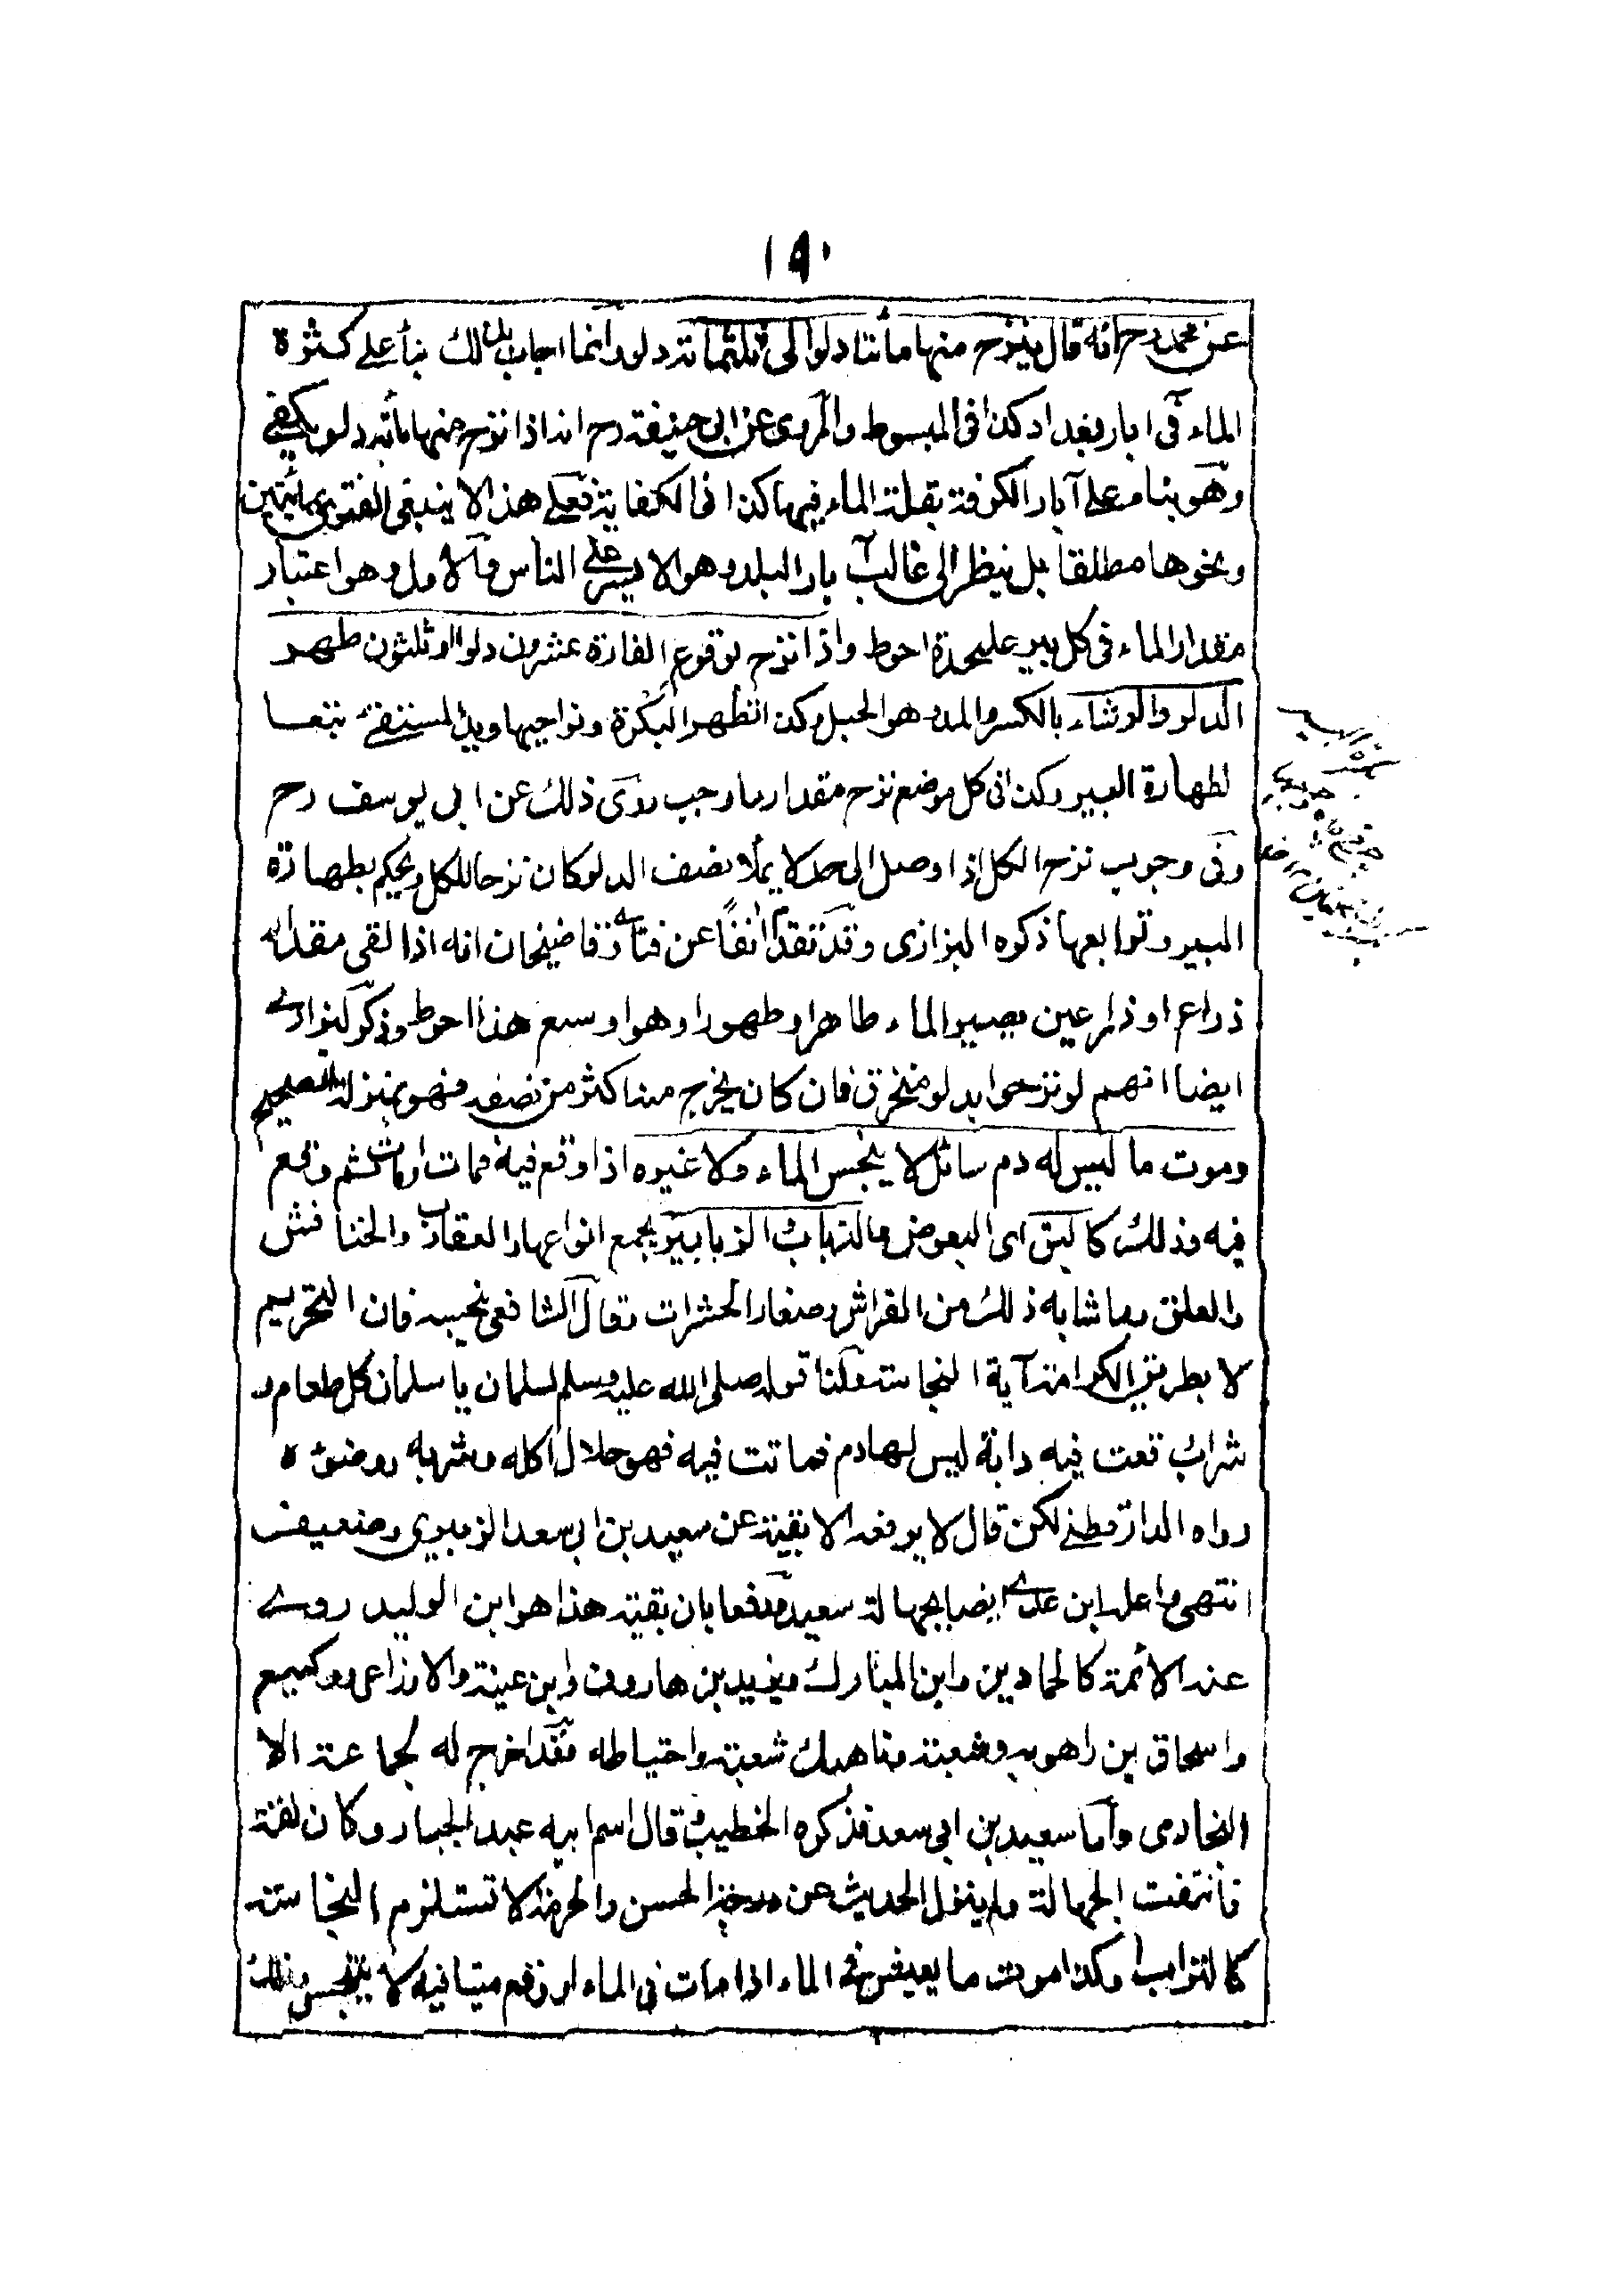 ١٩٠
عن محمد رح انه قال ينزح منها مأتتا دلوا لى ثلثمائة دلو وانما اجاب بذلك بنأ على كثرة
الماء فى ابار بغداد كذا فى المبسوط والمروى عن ابى حنيفة رح انه اذا نزح منها مأته دلو يكفى
وهو بناء على آبار الكوفة بقلة الماء فيها كذا فى الكفاية فعلى هذا لا ينبغى الفتوى بمائيتين
ونحوها مطلقا بل ينظر الى غالب آبار البلد وهو الا يسر على الناس والاول وهو اعتبار
مقدار الماء فى كل بير عليحدة احوط واذا نزح لوقوع الفارة عشرون دلوا او ثلثون طهر
الدلو والرشاء بالكسر والمد وهو الحبل وكذا تطهر البكرة ونواحيها ويد المستقى تبعا
لطهارة البير وكذا فى كل موضع نزح مقدار ما وجب روى ذلك عن ابى يوسف رح
وفى وجوب نزح الكل اذا وصل الى حد لا يملأ نصف الدلو كان نزحا للكل ويحكم بطهارة
البير وتوابعها ذكره البزازى وقد تقدم انفًا عن فتاوى قاضيخان انه اذا لقى مقدار
ذراع او ذراعين يصير الماء طاهرا وطهورا وهو اوسع هذا احوط وذكر البزازى
ايضا انهم لو نزحوا بدلو منخرق فان كان يخرج منه اكثر من نصفه فهو بمنزلة الصحيح
وموت ما ليس له دم سائل لا ينجس الماء ولا غيره اذا وقع فيه فمات او مات ثم وقع
فيه وذلك كالبق اى البعوض والذباب والزبابير بجمع انواعها والعقارب والخنافش
والعلق وما شابه ذلك من الفراش وصغار الحشرات وقال الشافعى نجيسه فان التحريم
لا بطريق الكرامة آية النجاسة ولنا قوله صلى الله عليه وسلم لسلمان يا سلمان كل طعام و
شراب قعت فيه دابة ليس لها دم فماتت فيه فهو حلال اكله وشربه ووضوئه
رواه الدارقطنى لكن قال لا يرفعه الا بقية عن سعيد بن ابى سعد الزبيرى وضعيف
انتهى واعله ابن عدى ايضا بجهالة سعيد ودفعا بان بقية هذا هو ابن الوليد روى
عنه الأئمة كالحمادين وابن المبارك ويزيد بن هارون وابن عينة والاوزاعى ووكيع
واسحاق بن راهويه وشعبة وناهيك شعبة واحتياطه وقد اخرج له لجماعة الا
البخارى واما سعيد بن ابى سعد فذكره الخطيب وقال اسم ابيه عبد الجبار وكان ثقة
فانتفت الجهالة ولم ينزل الحديث عن درجة الحسن والحرمة لا تستلزم النجاسة
كالتراب وكذا موت ما يعيش فى الماء اذا مات فى الماء او وقع ميتا فيه لا ينجس وذلك